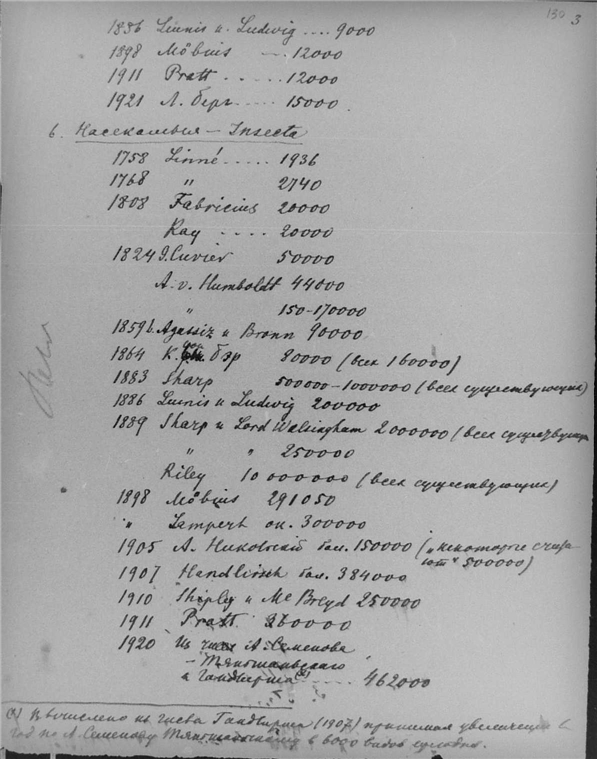 130 3
1886 Leunis u. Ludwig .... 9000
1898 Möbius — 12000
1911 Pratt ..... 12000
1921 Л. Берг ..... 15000
6. Насекомыя — Insecta
1758 Linné ..... 1936
1768 " 2740
1808 Fabricius 20000
Ray .... 20000
1824 G. Cuvier 50000
A. v. Humboldt 44000
" 150-170000
1859 L. Agassiz и Bronn 90000
1864 К. Бэр 20000 (всех 160000)
1883 Sharp 500000-1000000 (всех существующих)
1886 Leunis и Ludwig 200000
1889 Sharp и Lord Walsingham 2000000 (всех существующих
" " 250000
Riley 10 000000 (всех существующих)
1898 Möbius 291050
" Lampert ок. 300000
1905 А. Никольский бол. 150000 („некоторые счита-
ют" 500000)
1907 Handlirsch бол. 384000
1910 Shipley и Mc Breyd 250000
1911 Pratt 360000
1920 Из А. Семенова
-Тянтанского
и Гандлирша (*) ..... 462000
(*) Вычислено из числа Гандлирша (1907) принимая увеличение в
год по А. Семенову Тянтанскому в 6000 видов